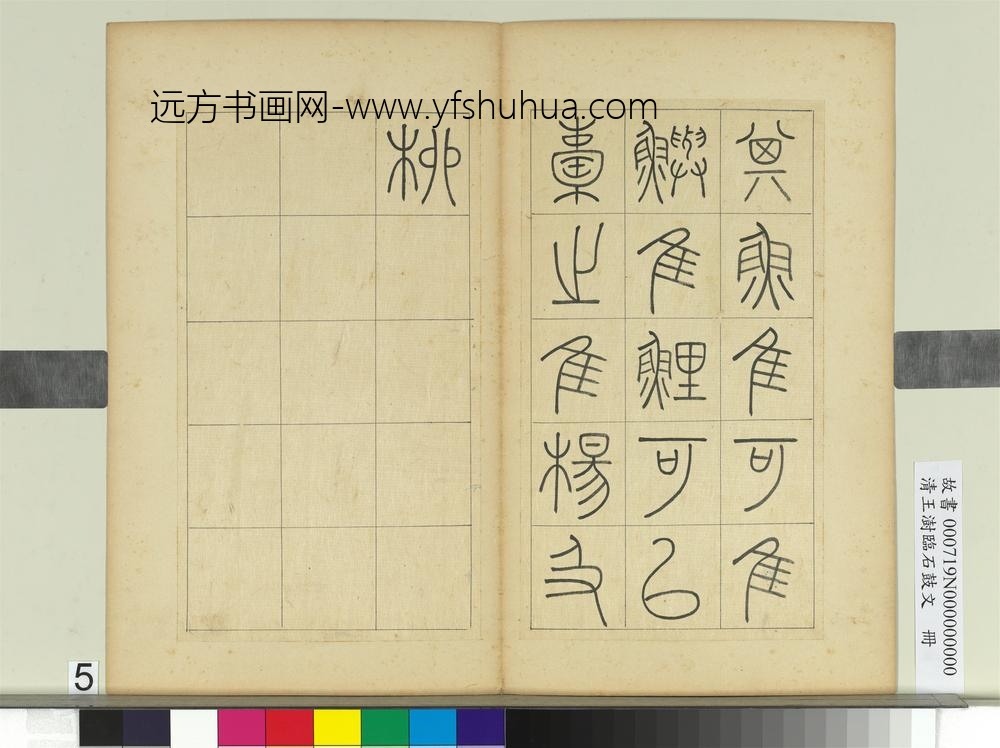 远方书画网-www.yfshuhua.com
其魚隹可隹
鱮隹鯉可㠯
橐之隹楊及
柳
故書 000719N000000000
清王澍臨石鼓文 冊
5